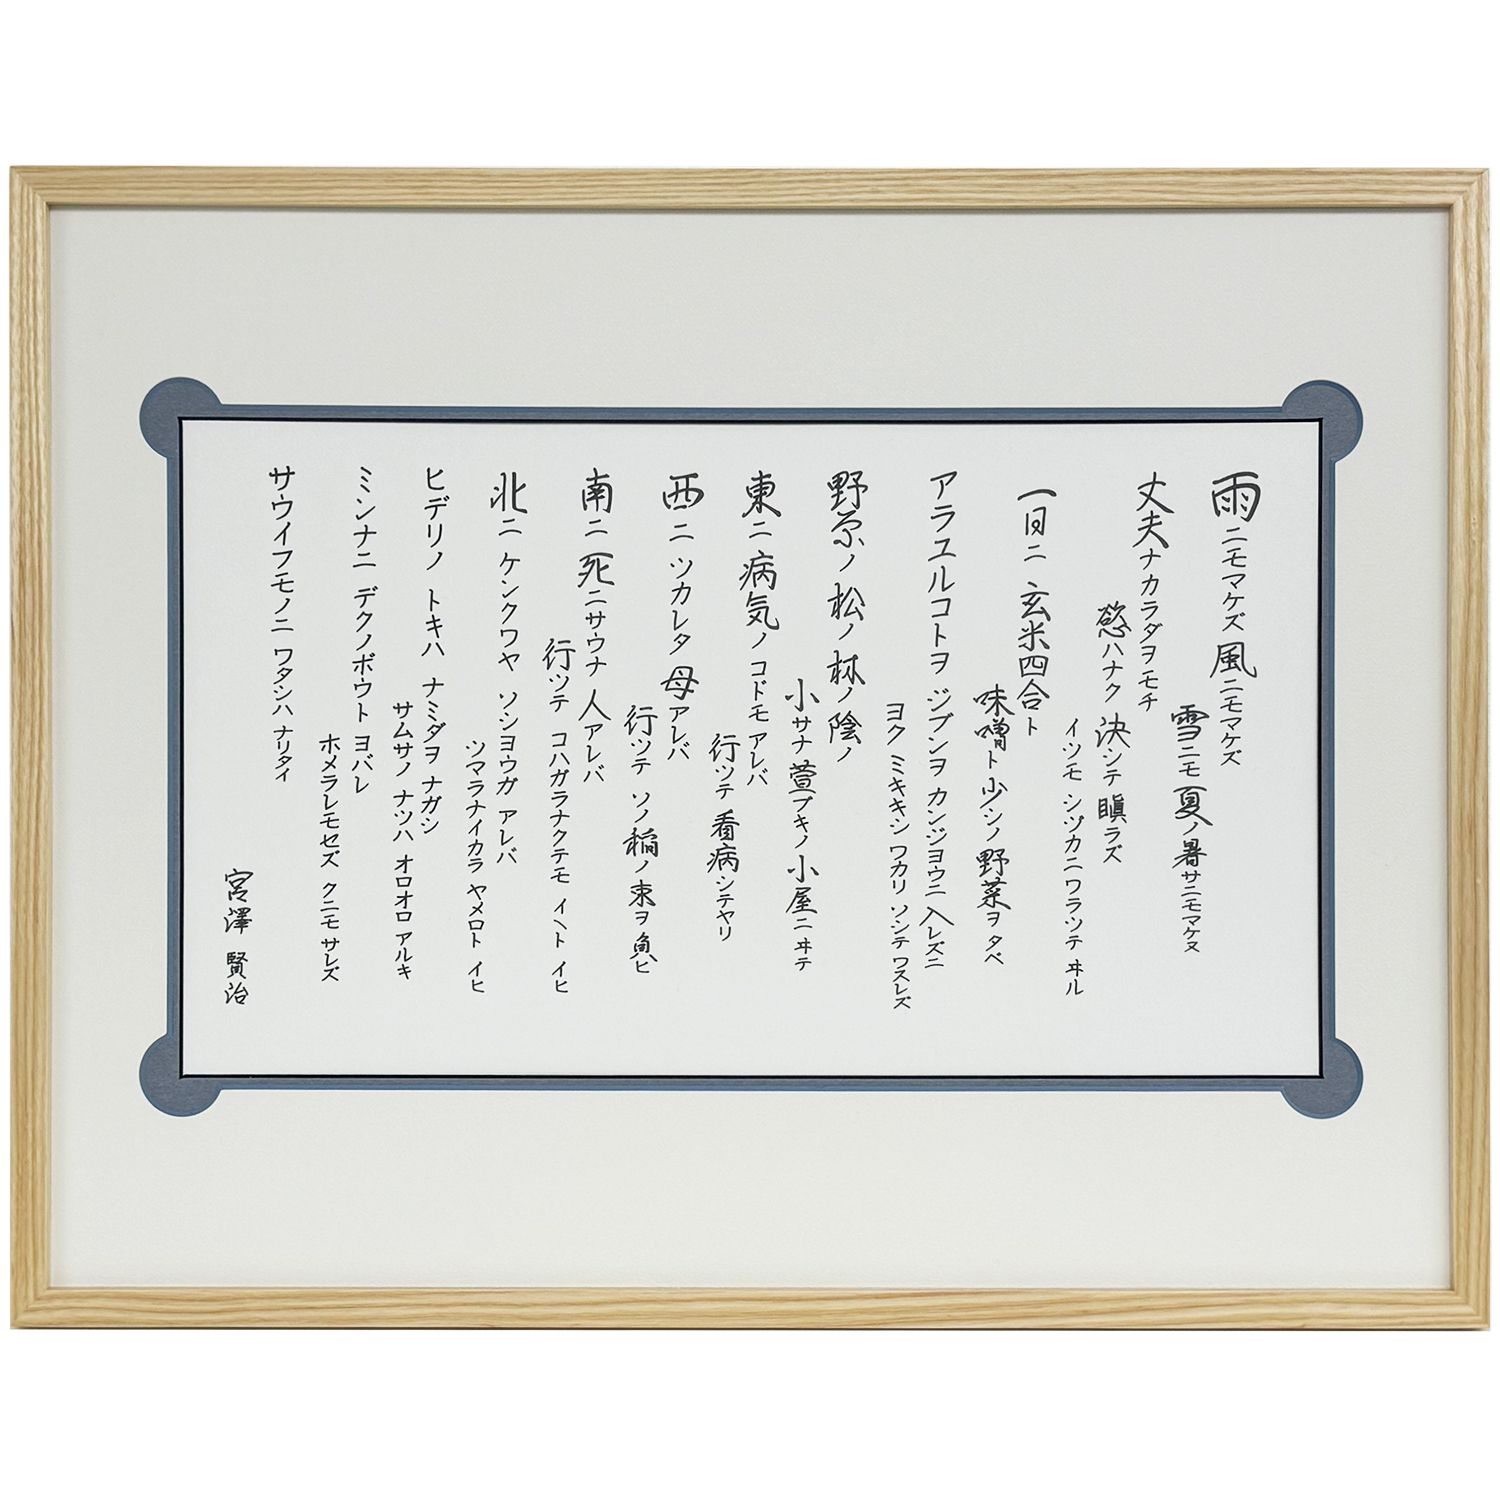 雨ニモマケズ風ニモマケズ
雪ニモ夏ノ暑サニモマケヌ
丈夫ナカラダヲモチ
慾ハナク決シテ瞋ラズ
イツモシヅカニワラツテヰル
一日ニ玄米四合ト
味噌ト少シノ野菜ヲタベ
アラユルコトヲジブンヲカンジヨウニ入レズニ
ヨクミキキシワカリソシテワスレズ
野原ノ松ノ林ノ陰ノ
小サナ萱ブキノ小屋ニヰテ
東ニ病気ノコドモアレバ
行ツテ看病シテヤリ
西ニツカレタ母アレバ
行ツテソノ稲ノ束ヲ負ヒ
南ニ死ニサウナ人アレバ
行ツテコハガラナクテモイヽトイヒ
北ニケンクワヤソシヨウガアレバ
ツマラナイカラヤメロトイヒ
ヒデリノトキハナミダヲナガシ
サムサノナツハオロオロアルキ
ミンナニデクノボウトヨバレ
ホメラレモセズクニモサレズ
サウイフモノニワタシハナリタイ
宮澤賢治